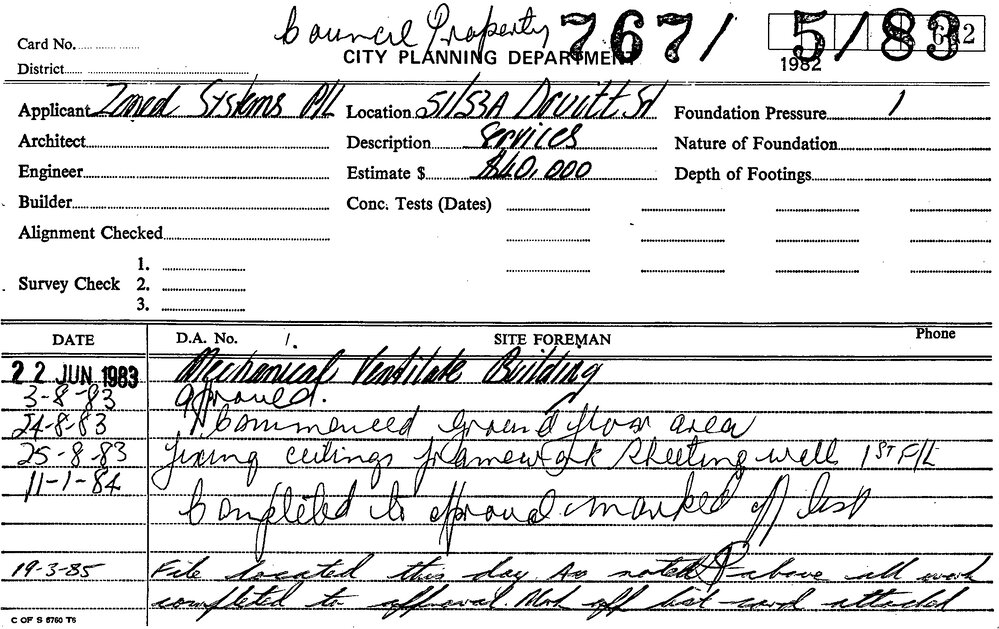 Council Property 767/ 5/83
Card No. CITY PLANNING DEPARTMENT 1982
District
Applicant Zoned Systems P/L Location 51/53A Davitt St Foundation Pressure 1
Architect Description Services Nature of Foundation
Engineer Estimate $ $40,000 Depth of Footings
Builder Conc. Tests (Dates)
Alignment Checked
1.
Survey Check 2.
3.
DATE D.A. No. /. SITE FOREMAN Phone
22 JUN 1983 Mechanical Ventilate Building
3-8-83 approved.
24-8-83 Commenced ground floor area
25-8-83 fixing ceilings framework sheeting well 1ST F/L
11-1-84 Completed to approval marked off list
19-3-85 File located this day As noted above all work
completed to approval. Mark off list card attached
C OF S 6760 T6